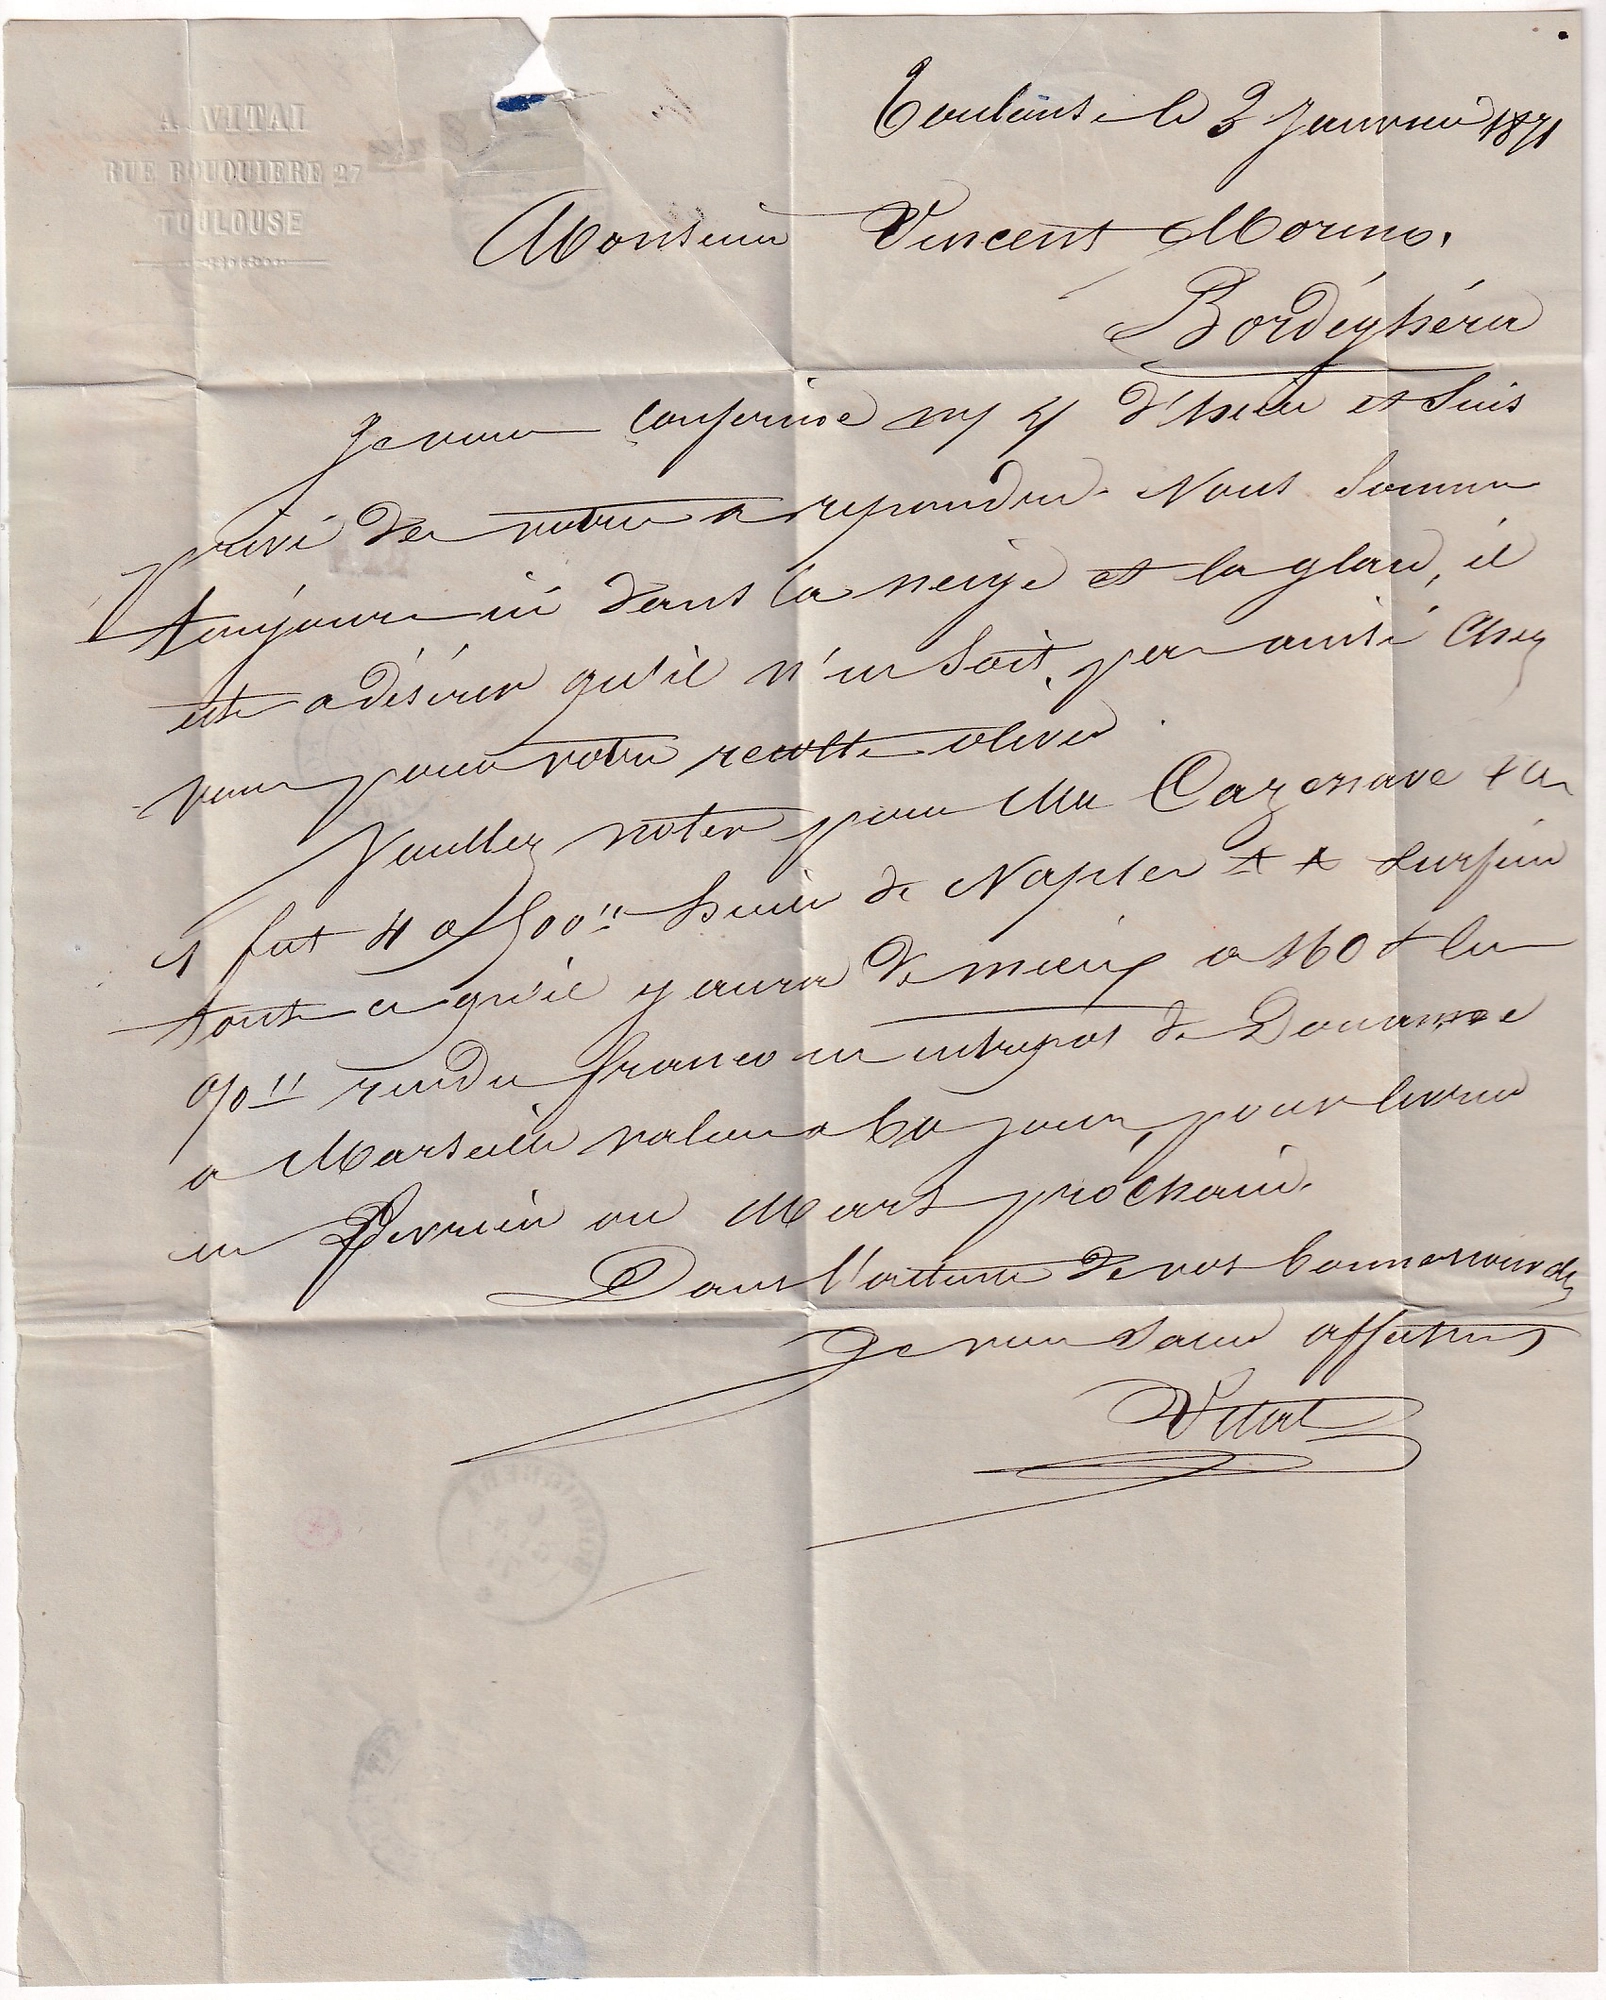 A. VITAL
RUE BOUQUIERE 27
TOULOUSE
Toulouse le 3 Janvier 1871
Monsieur Vincent Moreno.
Bordighéra
Je vous confirme d'hier et suis
privé de votre a repondre. Nous sommes
toujours ici dans la neige et la glace, il
est a désirer qu'il n'en soit pas ainsi chez
vous pour votre recolte olives
Veuillez noter pour Mrs Cazenave & Cie
1 fut 4 a 500 k huile de Naples AA surfine
tout ce qu'il y aura de mieux a 160 f les
% k rendu franco en entrepot de Douanne
a Marseille valeur a 60 jours, pour livrer
en Fevrier ou Mars prochain.
Dans l'attente de vos bonnes nouvelles
Je vous salue affectueust
Vital
BORDIGHERA